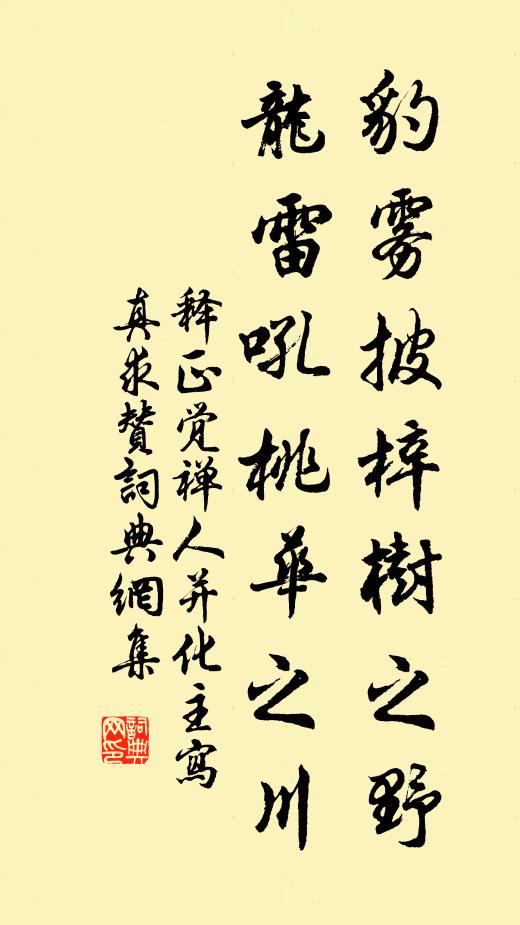 豹雾披梓樹之野
龍雷吼桃華之川
释正觉禅人并化主寫
真求賛詞典網集
詞典網印